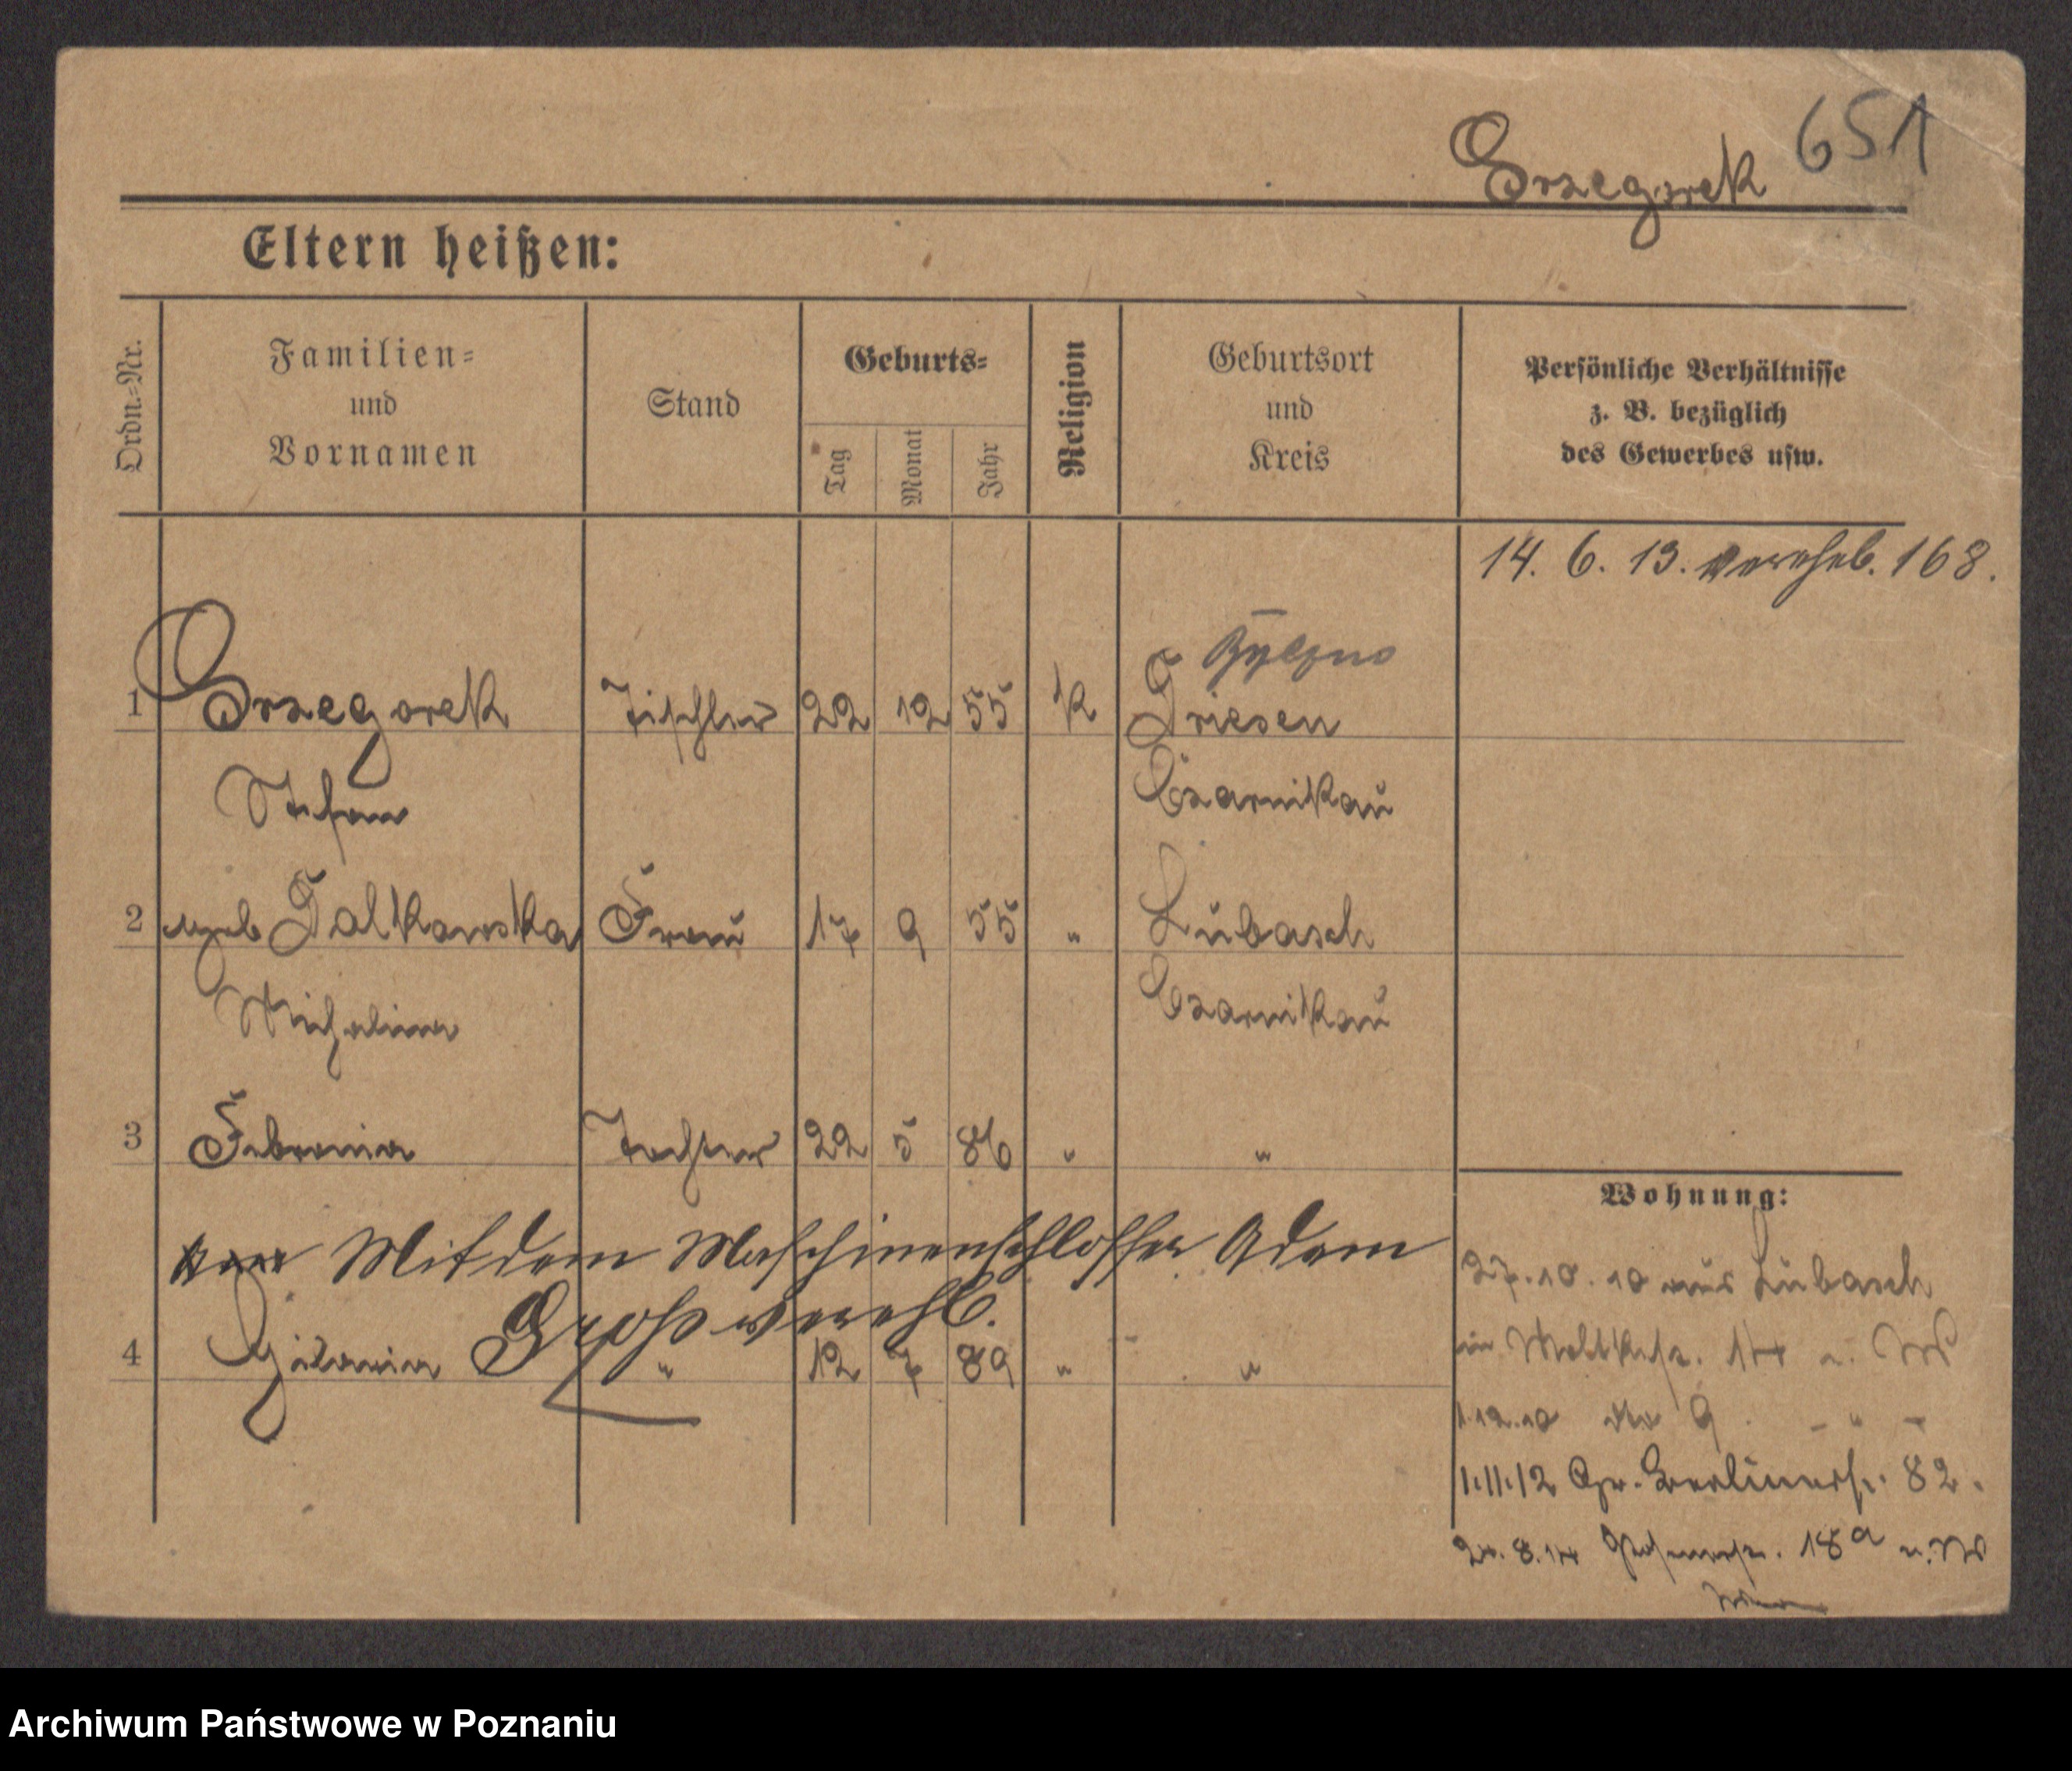 Grzegorek 651
Eltern heißen:
Ordn.=Nr.
Familien=
und
Vornamen
Stand
Geburts=
Tag
Monat
Jahr
Religion
Geburtsort
und
Kreis
Persönliche Verhältnisse
z. B. bezüglich
des Gewerbes usw.
14. 6. 13. verehel. 168.
1 Grzegorek Tischler 22 12 55 K Driesen
Stefan Czarnikau
2 geb Falkowska Frau 17 9 55 " Lubasch
Michalina Czarnikau
3 Febronia Tochter 22 5 86 " "
Mit dem Maschinenschlosser Adam
Groß verehl.
4 " 12 7 89 " "
Wohnung:
27.10.10 aus Lubasch
in Moltkestr. 14
1.12.10 9 - " -
1.11.12 Gr. Berlinerstr. 82.
24.8.14 18a
Archiwum Państwowe w Poznaniu